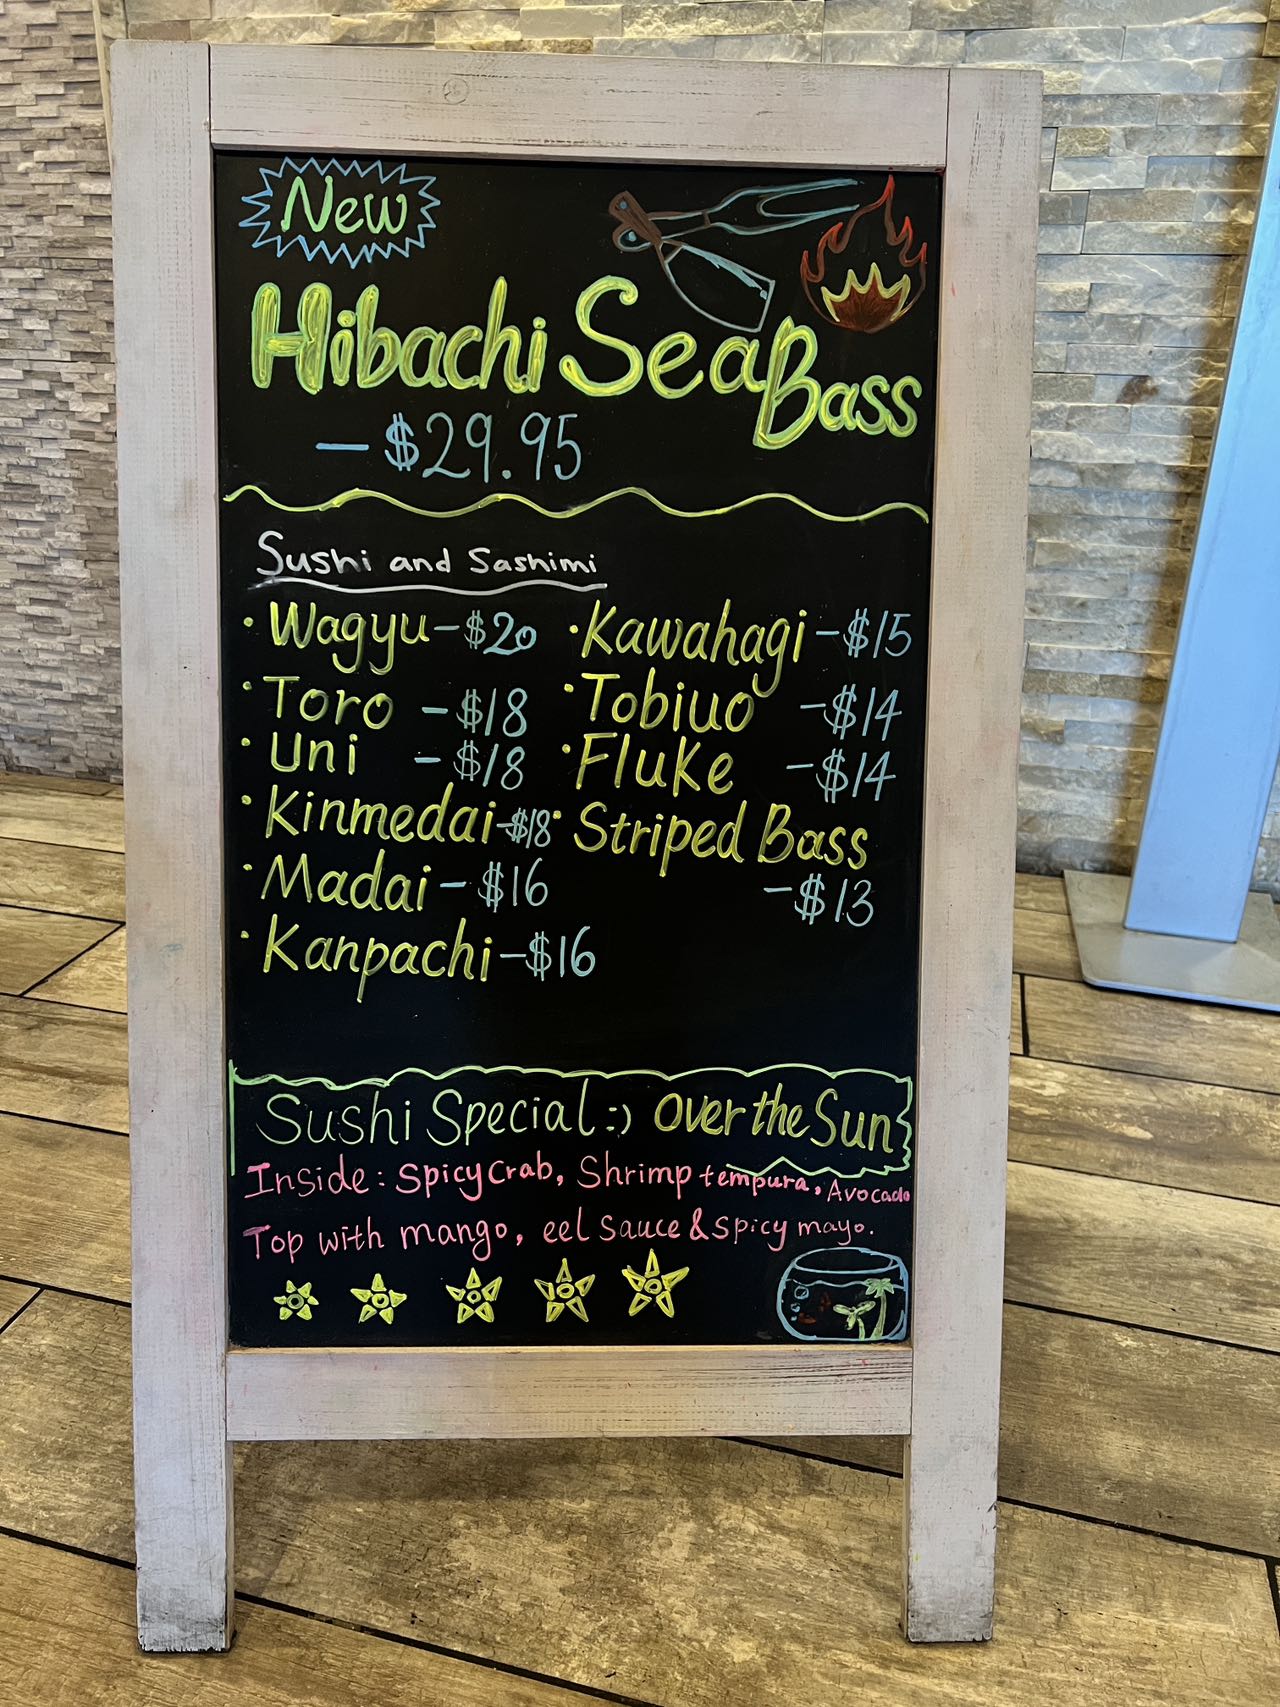 New
Hibachi Sea Bass
- $29.95
Sushi and Sashimi
· Wagyu - $20
· Toro - $18
· Uni - $18
· Kinmedai - $18
· Madai - $16
· Kanpachi - $16
· Kawahagi - $15
· Tobiuo - $14
· Fluke - $14
· Striped Bass
- $13
Sushi Special :) Over the Sun
Inside: Spicy Crab, Shrimp tempura, Avocado
Top with mango, eel sauce & spicy mayo.